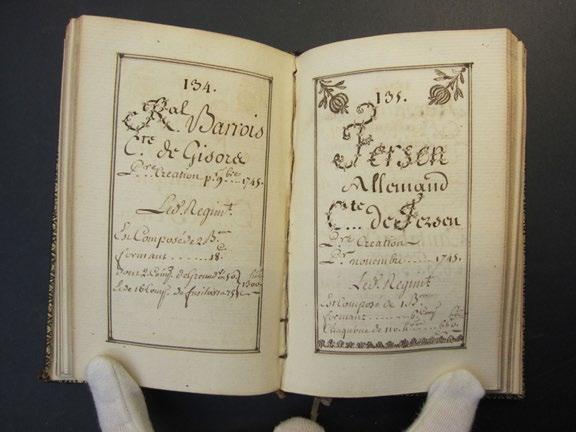 134.
Ral. Barrois
C.te de Gisors
P.re Creation p.r 9.bre 1745.
Led. Regim.t
Est Composé de 2 B.ons
formant ...... 18
dont 2 Comp. de Grenad.
& de 16 Comp. de fusiliers
135.
Fersen
Allemand
C.te de Fersen
P.re Creation
P.r novembre ... 1745.
Led. Regim.t
Est Composé de 1 B.on
formant
Chaqu'une de